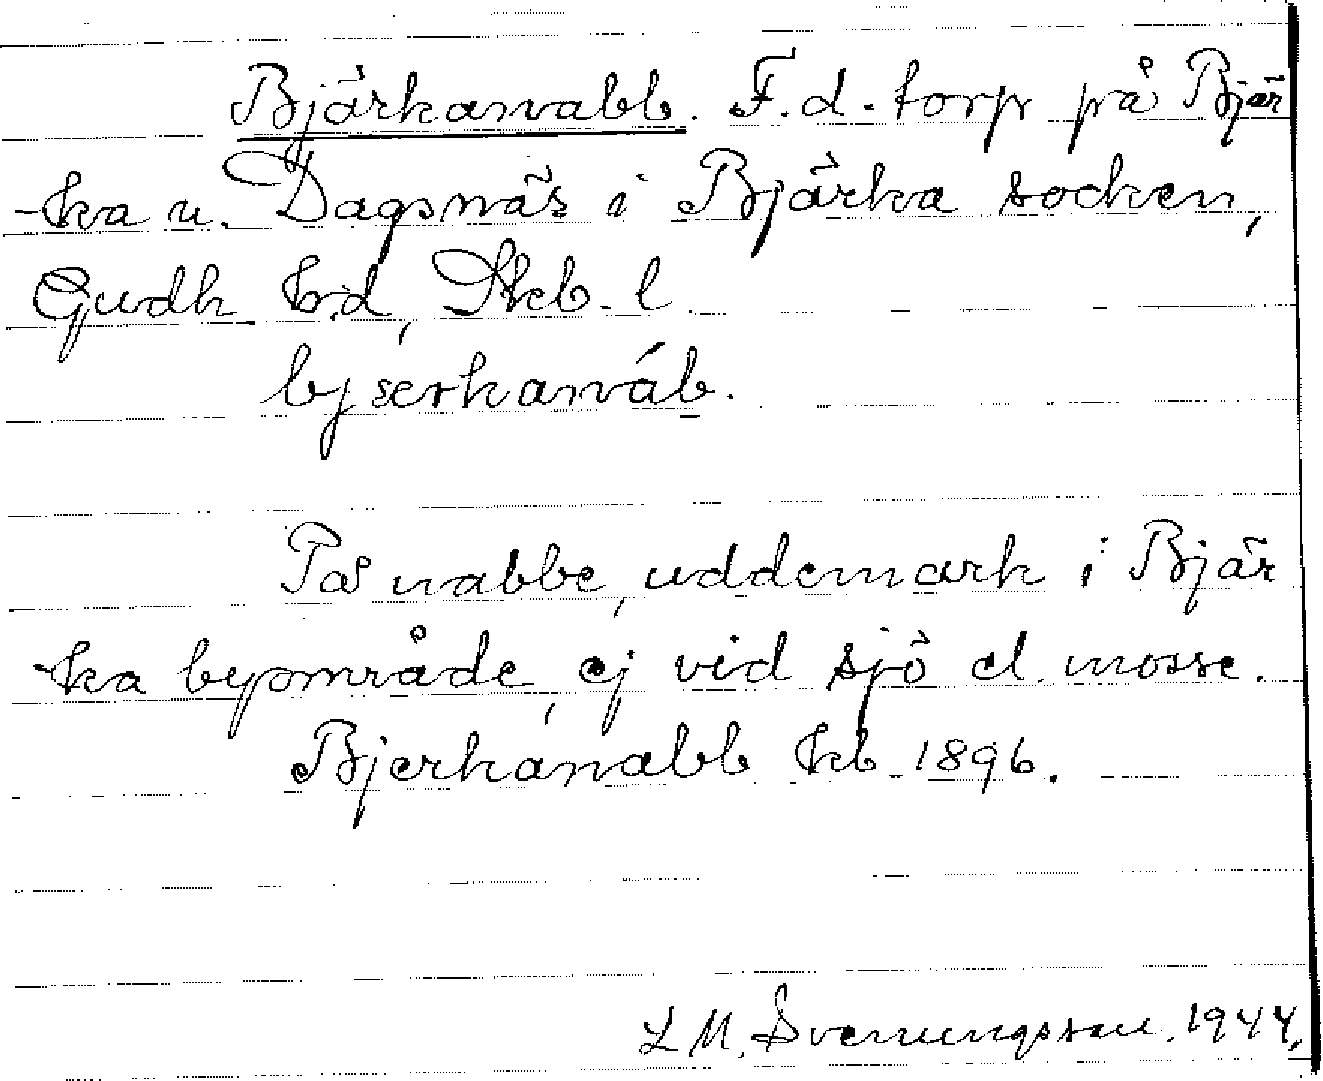 Bjärkanabb. F.d. torp på Bjär
-ka u. Dagsnäs i Bjärka socken,
Gudh hd, Skb. l
bjærkanáb.
På nabbe, uddemark i Bjär
-ka byområde, ej vid sjö el. mosse.
Bjerkanabb kb 1896.
L M. Svenungsson. 1944.